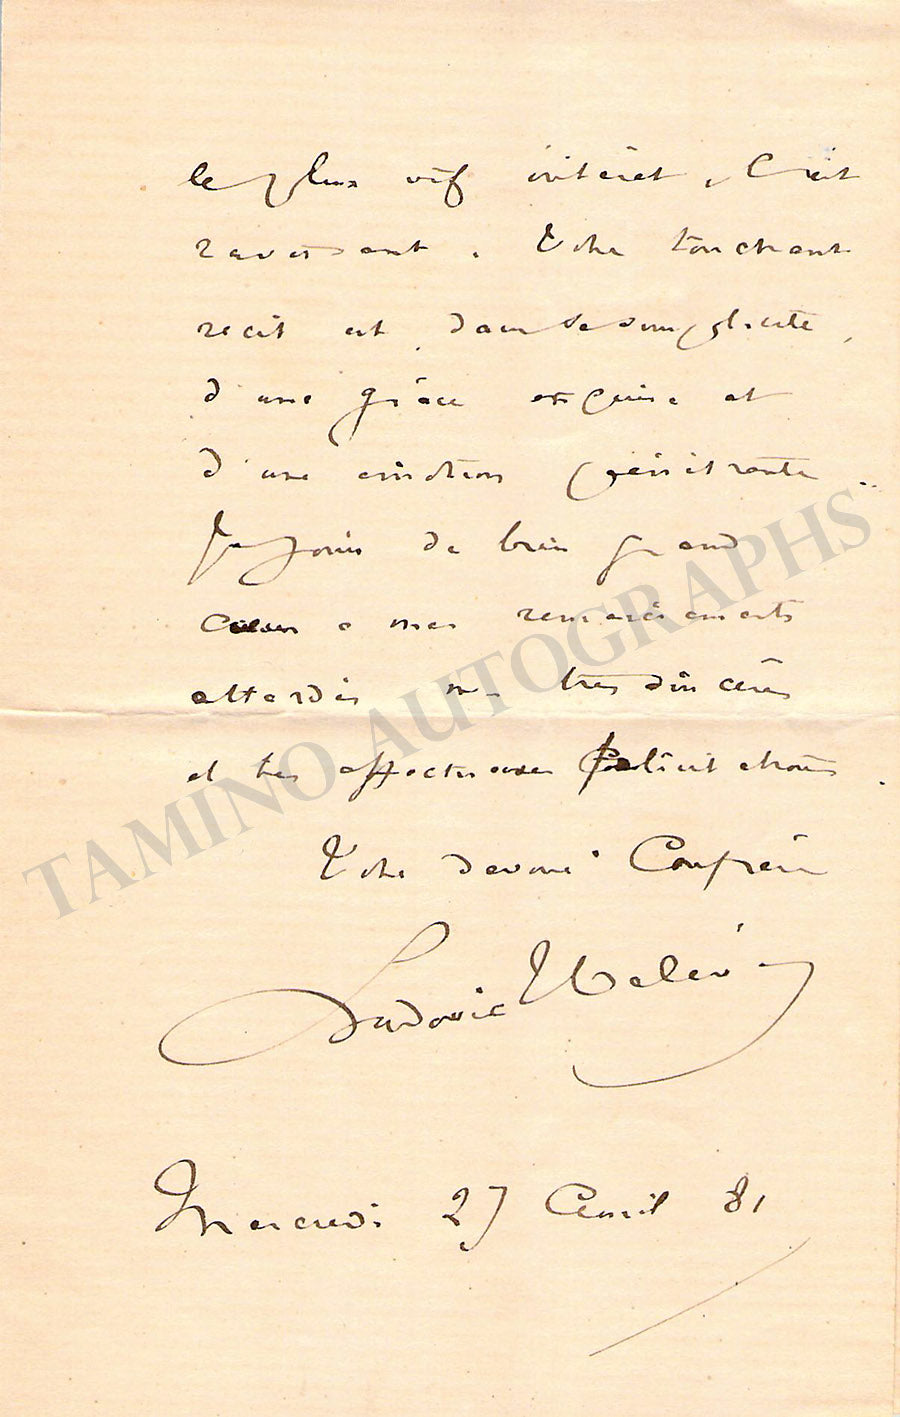 le plus vif intérêt, C'est
ravissant. Votre touchant
récit est, dans sa simplicité,
d'une grâce exquise et
d'une émotion pénétrante..
Je joins de bien grand
cœur à mes remerciements
attardés mes très sincères
et très affectueuses félicitations.
Votre dévoué Confrère
Ludovic Halévy
Mercredi 27 Avril 81
TAMINO AUTOGRAPHS